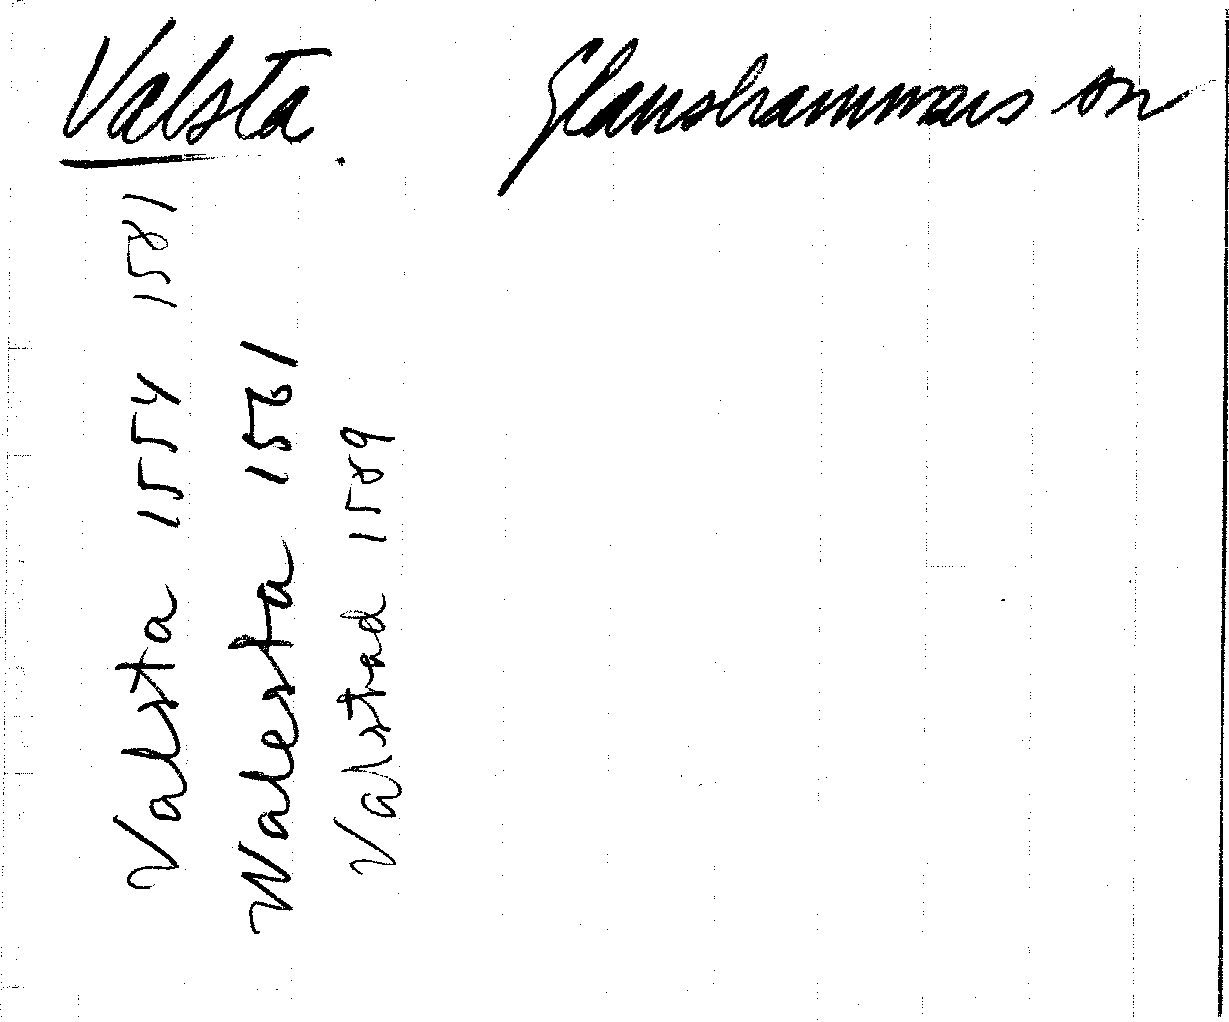 Valsta. Glanshammars sn
Valsta 1554 1581
Walesta 1561
Valstad 1589